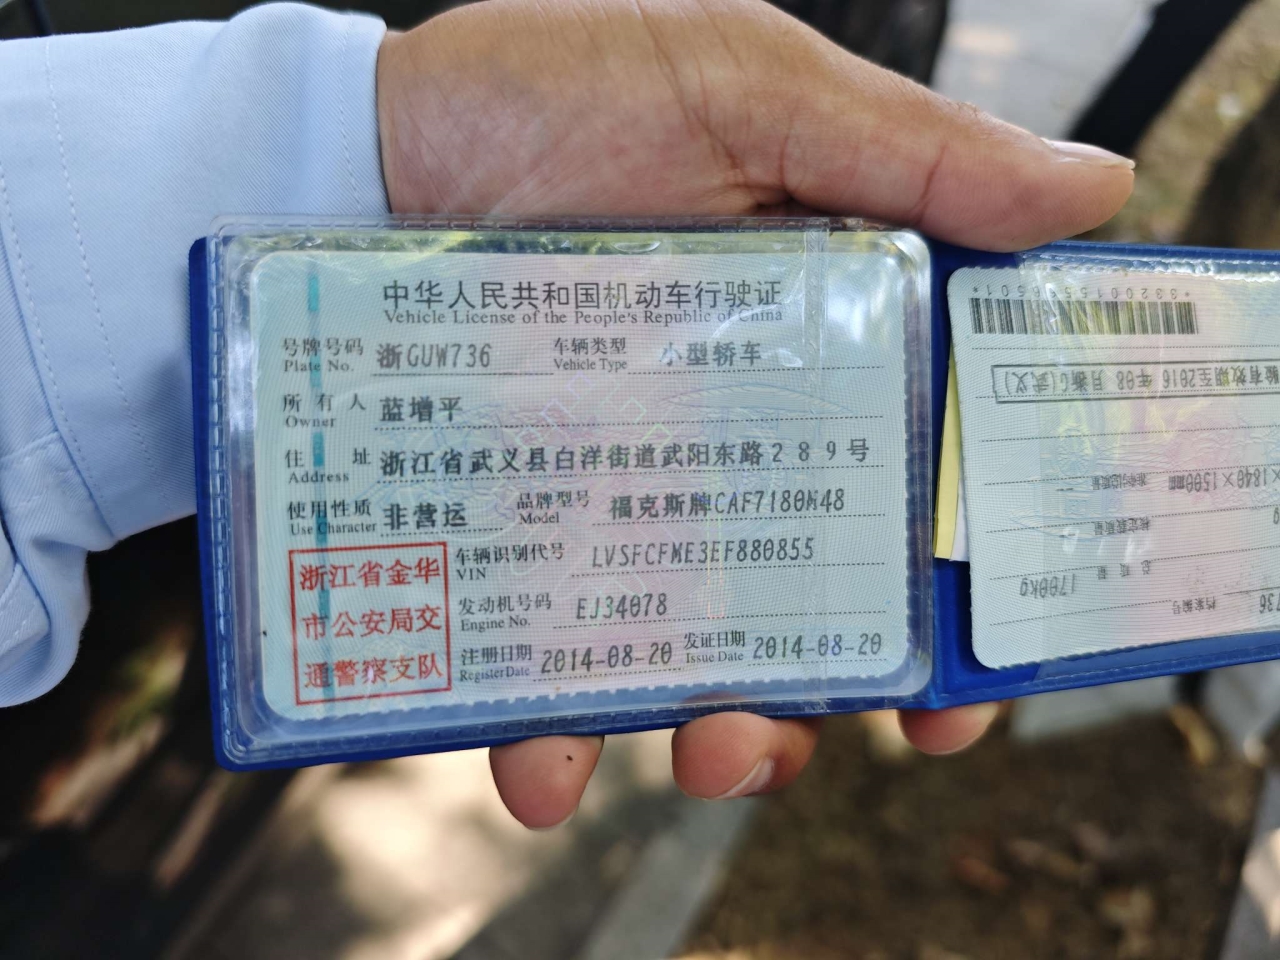 中华人民共和国机动车行驶证
Vehicle License of the People's Republic of China
号牌号码 浙GUW736 车辆类型 小型轿车
Plate No. Vehicle Type
所有人 蓝增平
Owner
住址 浙江省武义县白洋街道武阳东路289号
Address
使用性质 非营运 品牌型号 福克斯牌CAF7180N48
Use Character Model
车辆识别代号 LVSFCFME3EF880855
VIN
发动机号码 EJ34078
Engine No.
注册日期 2014-08-20 发证日期 2014-08-20
Register Date Issue Date
浙江省金华
市公安局交
通警察支队
验有效期至2016年08月浙G(武义)
×1840×1500
总质量 1700kg
档案编号